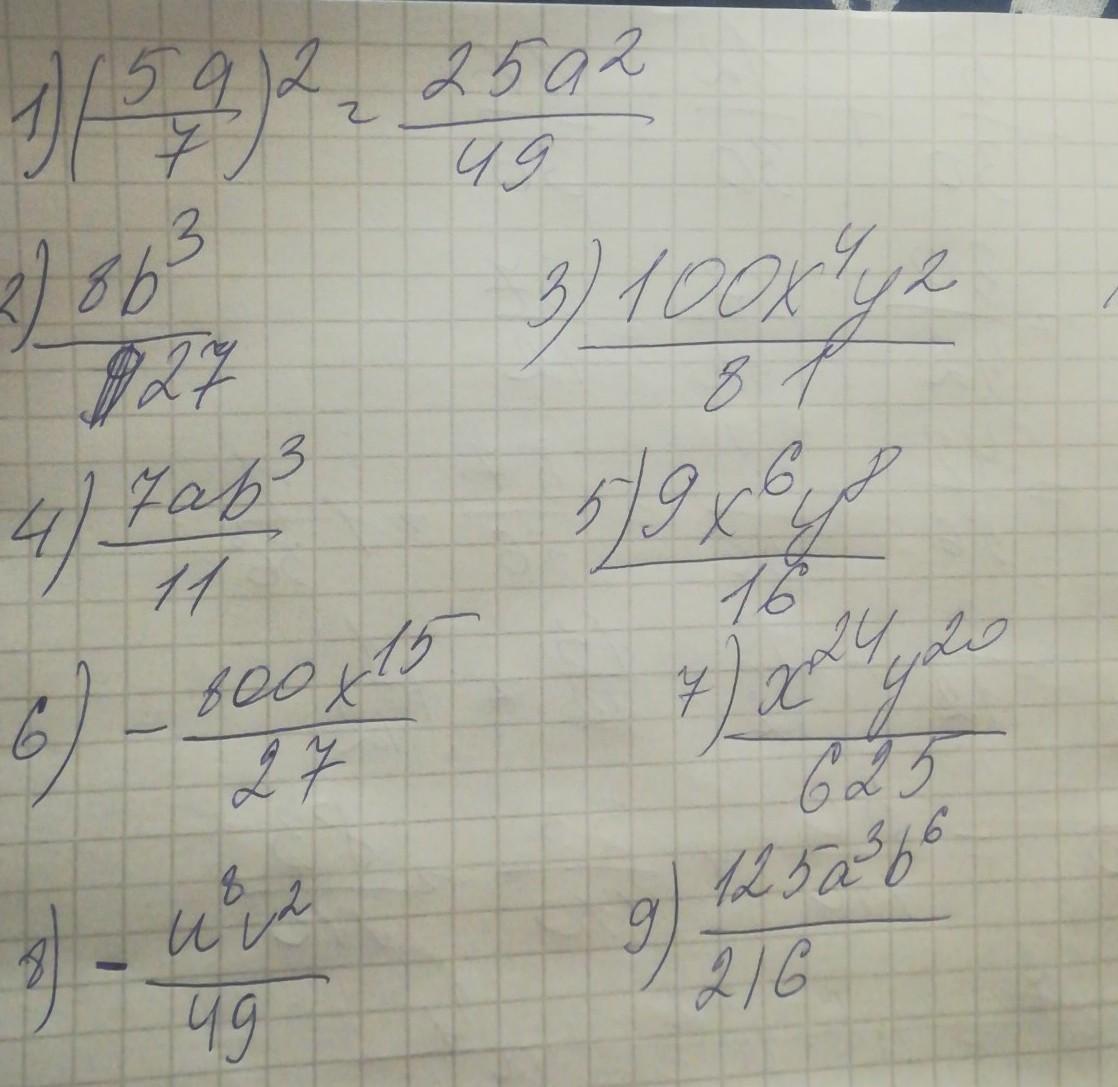 1) (5a/7)² = 25a²/49
2) 8b³/27
3) 100x⁴y²/81
4) 7ab³/11
5) 9x⁶y⁸/16
6) - 800x¹⁵/27
7) x²⁴y²⁰/625
8) - u⁸v²/49
9) 125a³b⁶/216